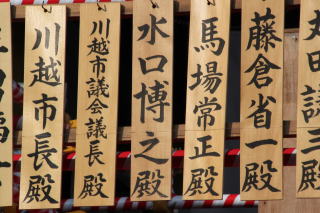 藤倉省一殿
馬場常正殿
水口博之殿
川越市議会議長殿
川越市長殿